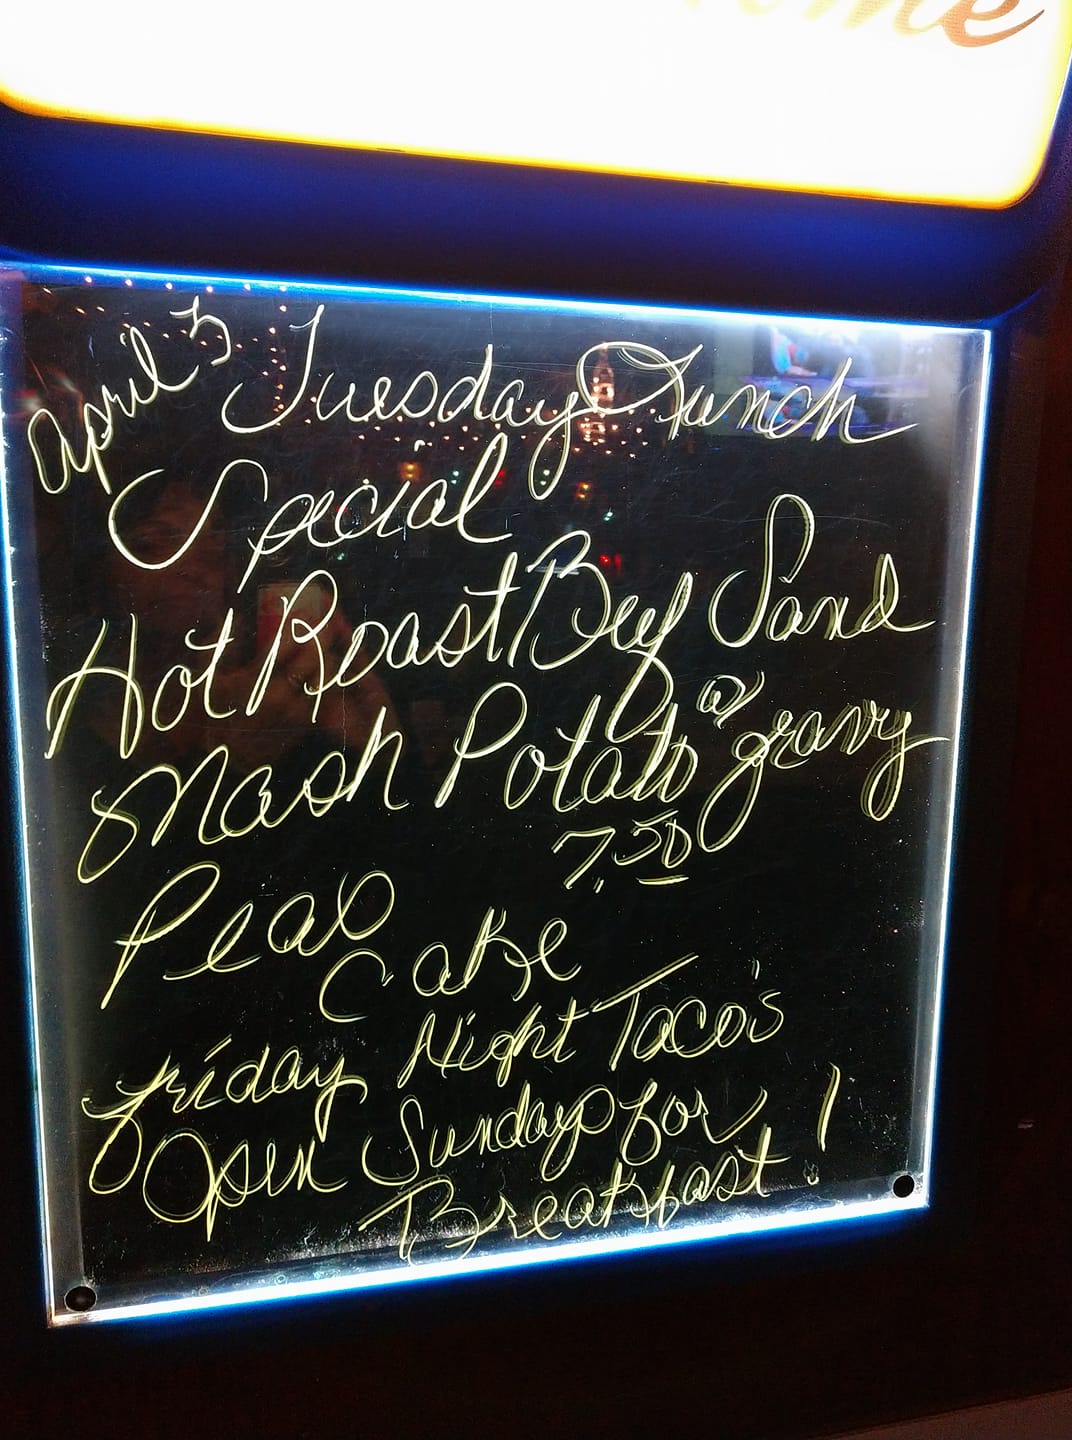 ome
April 5 Tuesday Lunch
Special
Hot Roast Beef Sand
Mash Potato w/ gravy
7.50
Peas
Cake
Friday Night Taco's
Open Sundays for
Breakfast!